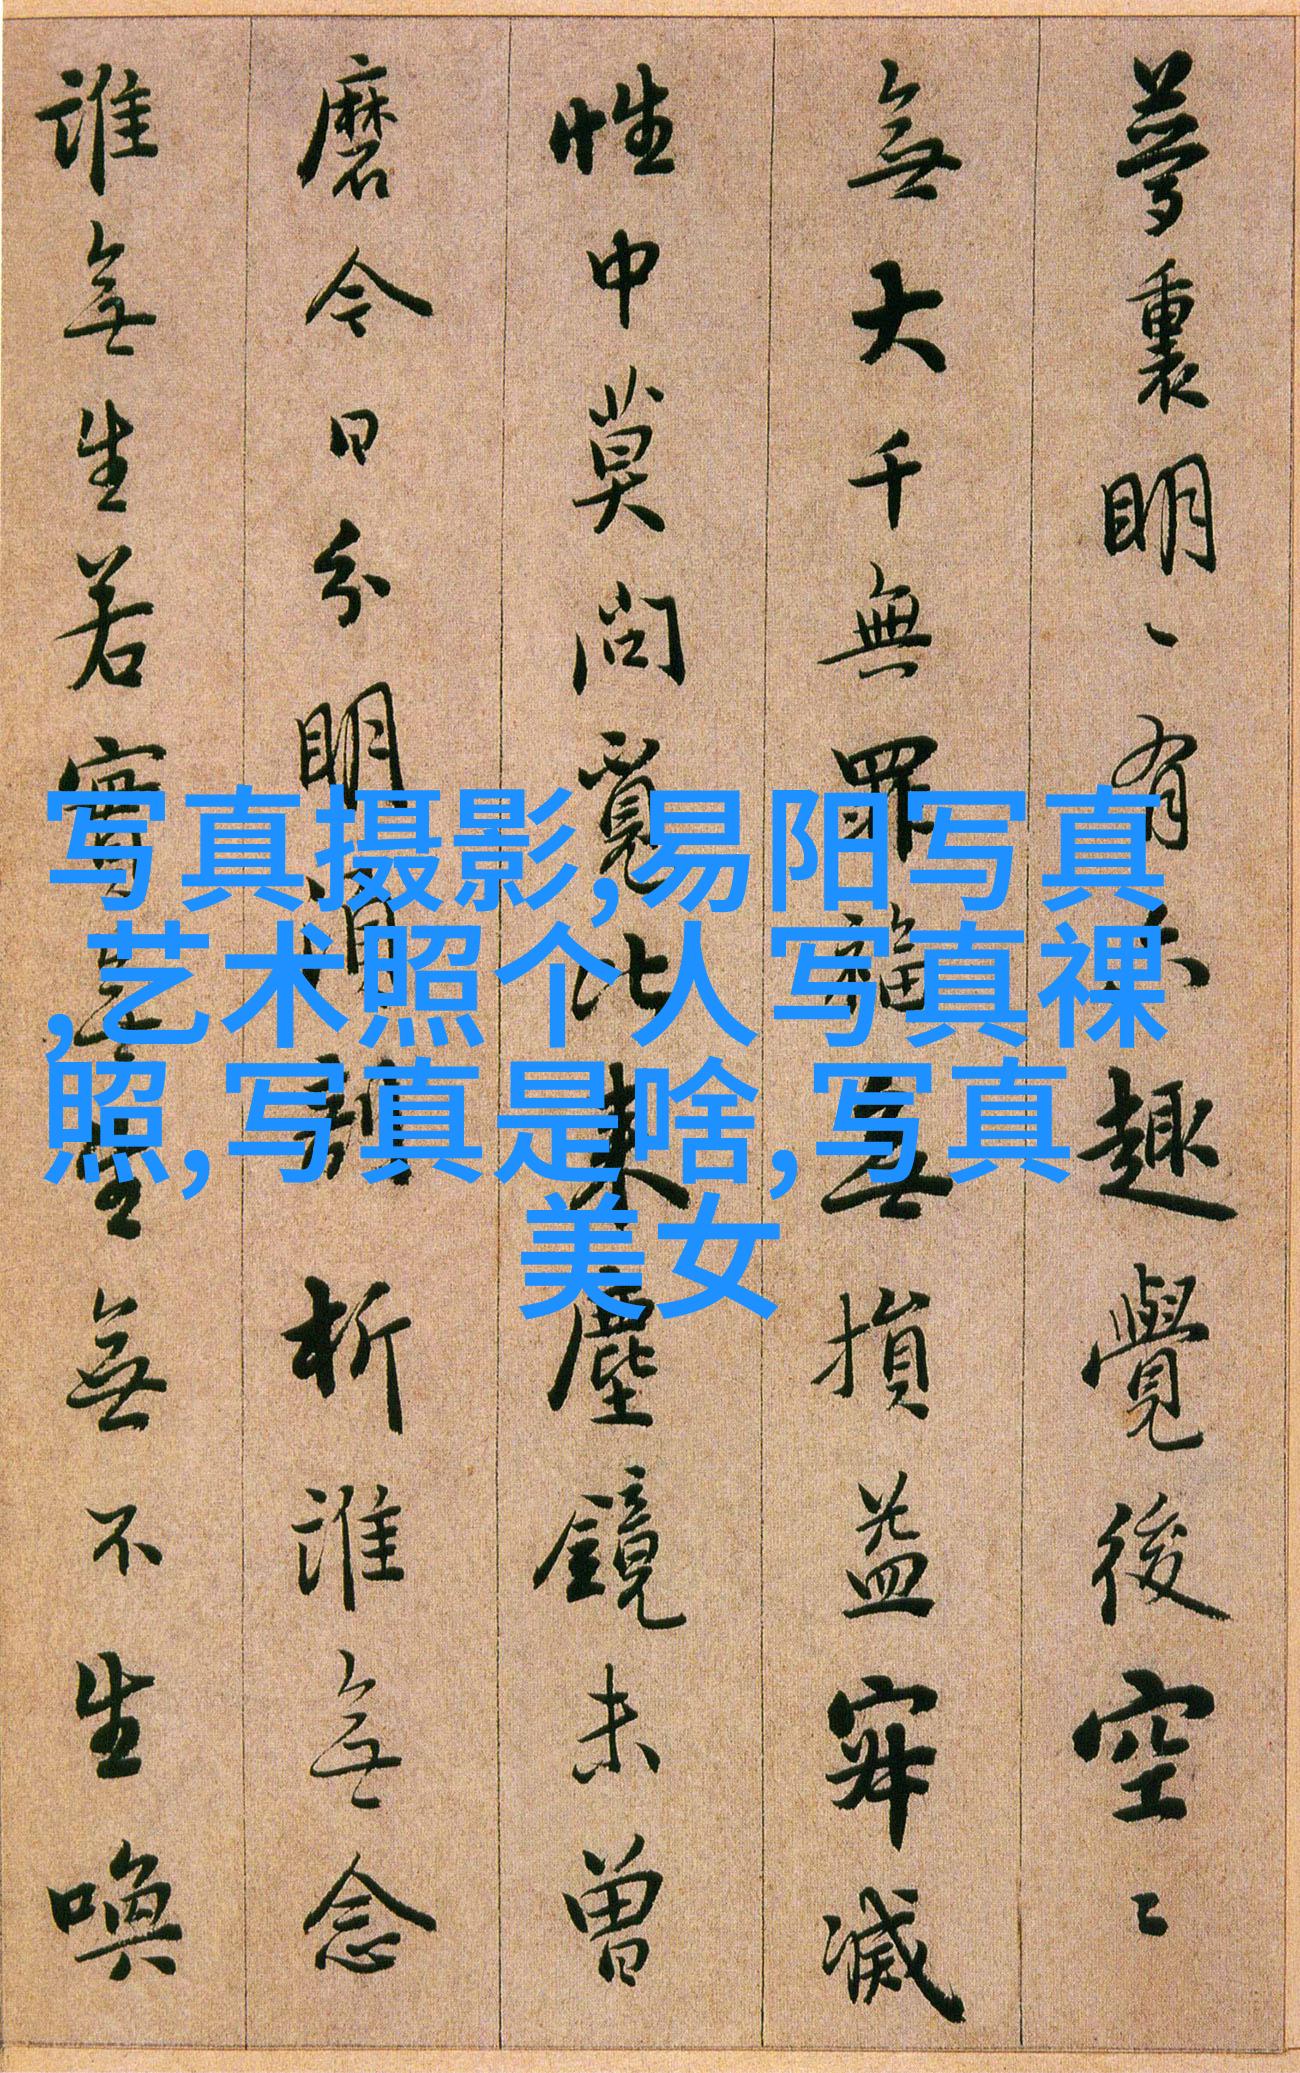 夢裏明〻有六趣覺後空〻
無大千無罪福無損益寂滅
性中莫問覓比來塵鏡未曾
磨今日分明須剖析誰無念
誰無生若實無生無不生喚
写真摄影,易阳写真
,艺术照个人写真裸
照,写真是啥,写真
美女